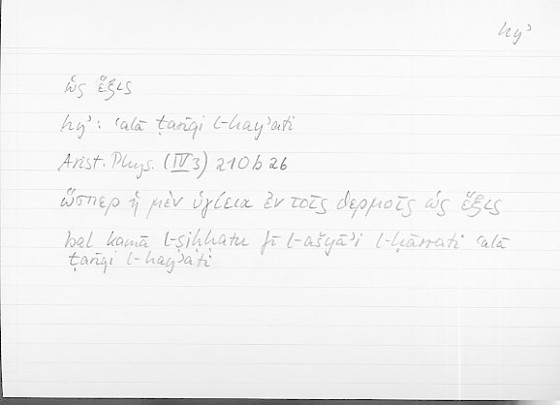 hyʾ
ὡς ἕξις
hyʾ : ʿalā ṭarīqi l-hayʾati
Arist. Phys. (IV 3) 210 b 26
ὥσπερ ἡ μὲν ὑγίεια ἐν τοῖς θερμοῖς ὡς ἕξις
bal kamā l-ṣiḥḥatu fī l-ašyāʾi l-ḥārrati ʿalā
ṭarīqi l-hayʾati